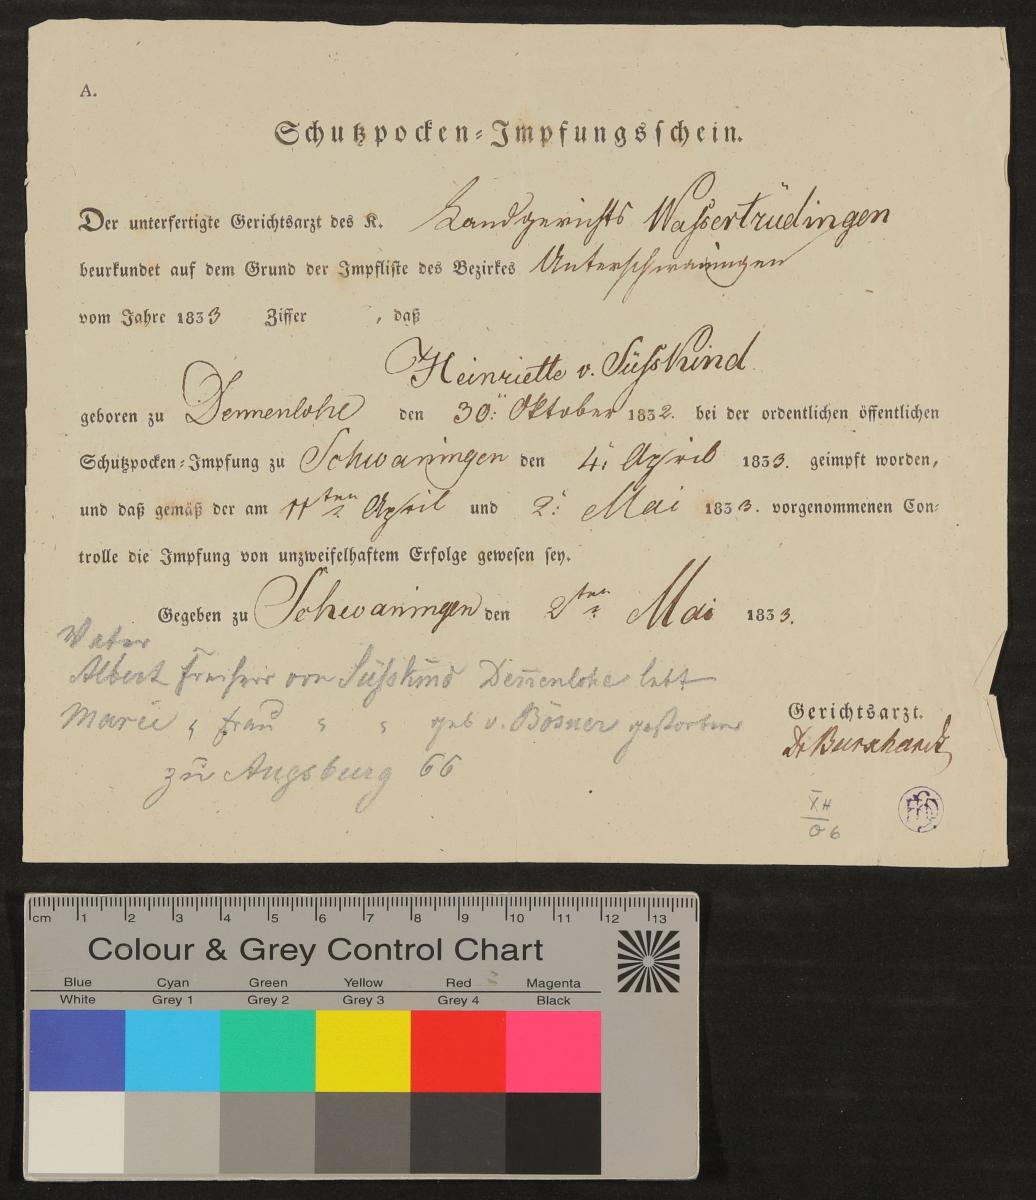 A.
Schutzpocken-Impfungsschein.
Der unterfertigte Gerichtsarzt des K. Landgerichts Waßertrüdingen
beurkundet auf dem Grund der Impfliste des Bezirkes Unterschwaningen
vom Jahre 1833 Ziffer , daß
Heinriette v. Süsskind
geboren zu Dennenlohe den 30. Oktober 1832. bei der ordentlichen öffentlichen
Schutzpocken-Impfung zu Schwaningen den 4. April 1833. geimpft worden,
und daß gemäß der am 11ten April und 2. Mai 1833. vorgenommenen Con-
trolle die Impfung von unzweifelhaftem Erfolge gewesen sey.
Gegeben zu Schwaningen den 2ten Mai 1833.
Vater
Albert Freiherr von Süsskind Dennenlohe lebt
Marie " Frau " " geb v. Bösner gestorben
zu Augsburg 66
Gerichtsarzt.
Dr Burkhardt
cm 1 2 3 4 5 6 7 8 9 10 11 12 13
Colour & Grey Control Chart
Blue Cyan Green Yellow Red Magenta
White Grey 1 Grey 2 Grey 3 Grey 4 Black